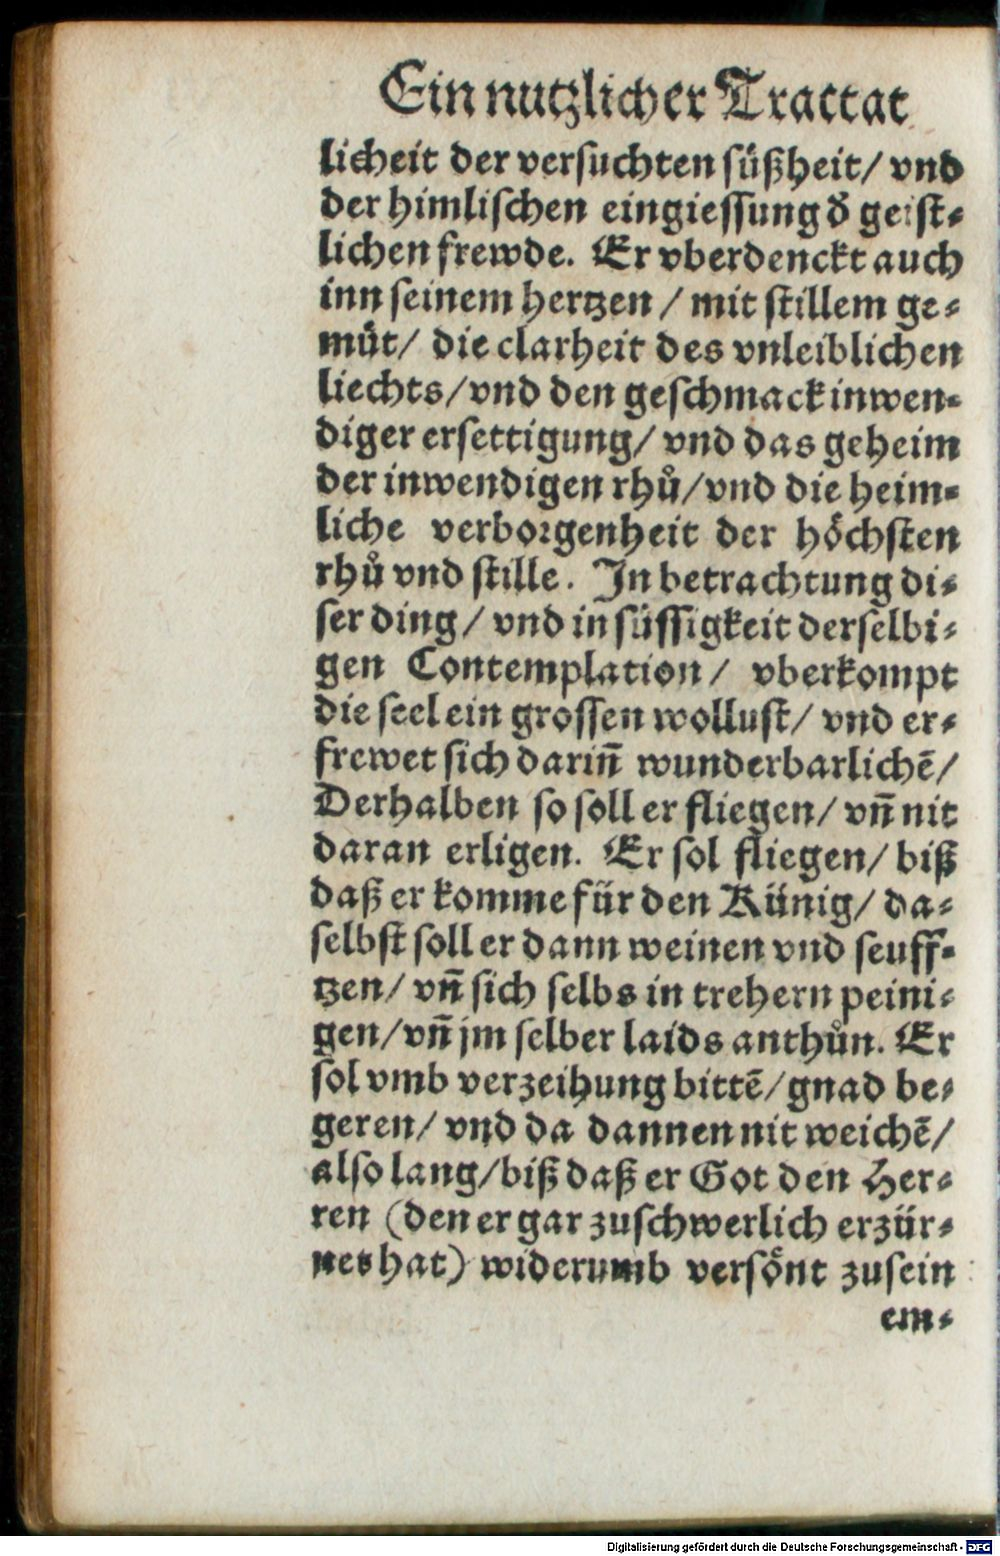 Ein nutzlicher Tractat
licheit der versuchten süßheit/ vnd
der himlischen eingiessung d̕ geist⸗
lichen frewde. Er vberdenckt auch
inn seinem hertzen / mit stillem ge⸗
můt/ die clarheit des vnleiblichen
liechts/vnd den geschmack inwen⸗
diger ersettigung/ vnd das geheim
der inwendigen rhů/vnd die heim⸗
liche verborgenheit der höchsten
rhů vnd stille. In betrachtung di⸗
ser ding/ vnd in süssigkeit derselbi⸗
gen Contemplation/ vberkompt
die seel ein grossen wollust/ vnd er⸗
frewet sich darin̄ wunderbarlichē/
Derhalben so soll er fliegen/ vn̄ nit
daran erligen. Er sol fliegen/ biß
daß er komme für den Künig/ da⸗
selbst soll er dann weinen vnd seuff⸗
tzen/ vn̄ sich selbs in trehern peini⸗
gen/vn̄ jm selber laids anthůn. Er
sol vmb verzeihung bittē/gnad be⸗
geren/ vnd da dannen nit weichē/
also lang/biß daß er Got den Her⸗
ren (den er gar zuschwerlich erzür⸗
net hat) widerumb versönt zusein
em⸗
Digitalisierung gefördert durch die Deutsche Forschungsgemeinschaft - DFG